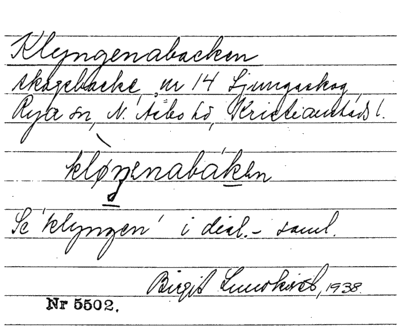 Klyngenabacken
skogsbacke, nr 14 Ljungaskog,
Rya sn, N. Åsbo hd, Kristianstads l.
kløŋenabáken
Se 'klyngen' i dial.- saml.
Birgit 1938.
Nr 5502.